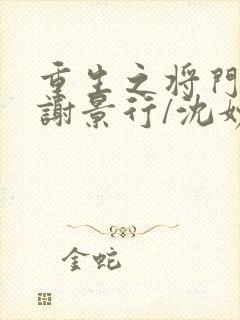 重生之将門
謝景行/沈妙
金蛇